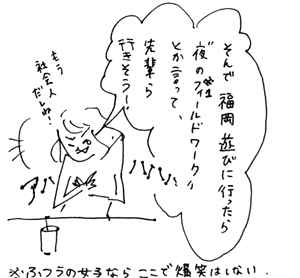 そんで 福岡 遊びに行ったら
"夜のフィールドワーク"
とか言って、
先輩ら
行きそうー!
もう
社会人
だしね!
アハハハハハ
※ふつうの女子なら ここで爆笑はしない.